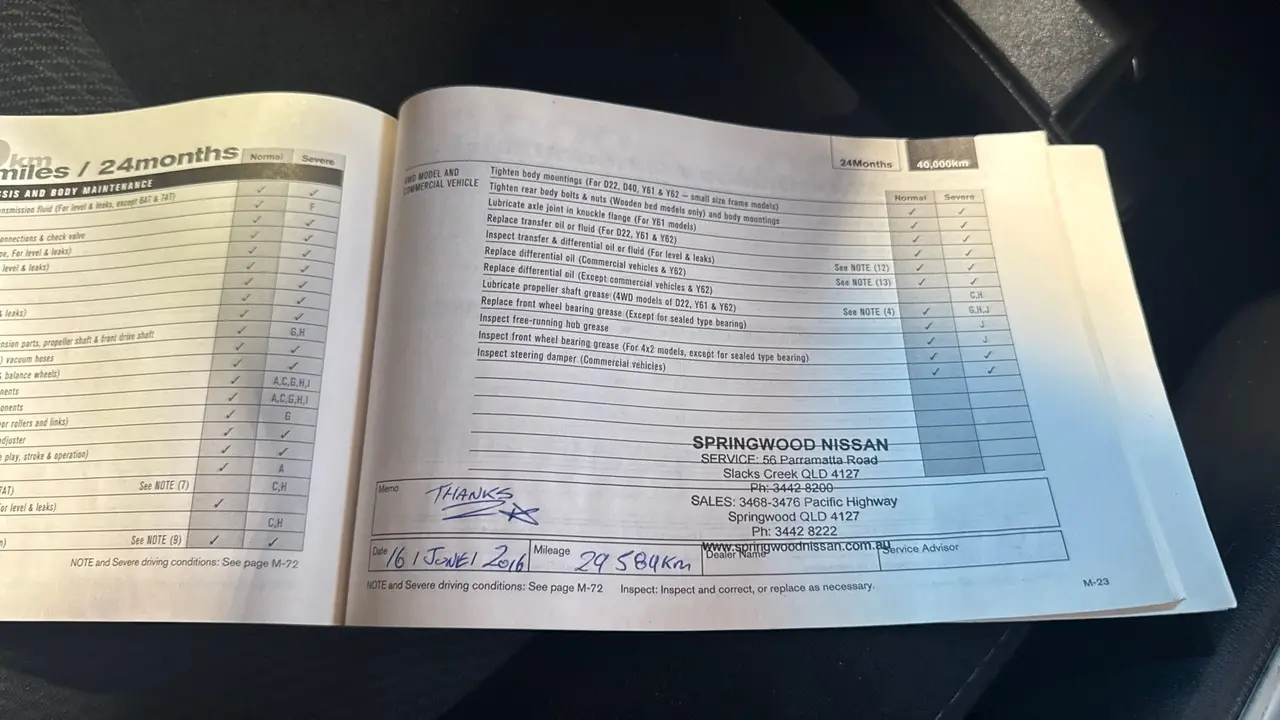 km
miles / 24months
Normal Severe
SIS AND BODY MAINTENANCE
nsmission fluid (For level & leaks, except 6AT & 7AT) ✓ ✓
✓ F
onnections & check valve ✓ ✓
pe, For level & leaks) ✓ ✓
level & leaks) ✓ ✓
✓ ✓
✓ ✓
& leaks) ✓ ✓
✓ G,H
nsion parts, propeller shaft & front drive shaft ✓ ✓
) vacuum hoses ✓ ✓
& balance wheels) ✓ A,C,G,H,I
nents ✓ A,C,G,H,I
onents ✓ G
or rollers and links) ✓ ✓
djuster ✓ ✓
e play, stroke & operation) ✓ A
7AT) See NOTE (7) C,H
or level & leaks) ✓
C,H
n) See NOTE (9) ✓ ✓
NOTE and Severe driving conditions: See page M-72
24Months 40,000km
Normal Severe
4WD MODEL AND
COMMERCIAL VEHICLE
Tighten body mountings (For D22, D40, Y61 & Y62 – small size frame models) ✓ ✓
Tighten rear body bolts & nuts (Wooden bed models only) and body mountings ✓ ✓
Lubricate axle joint in knuckle flange (For Y61 models) ✓ ✓
Replace transfer oil or fluid (For D22, Y61 & Y62) ✓ ✓
Inspect transfer & differential oil or fluid (For level & leaks) See NOTE (12) ✓ ✓
Replace differential oil (Commercial vehicles & Y62) See NOTE (13) ✓ ✓
Replace differential oil (Except commercial vehicles & Y62) C,H
Lubricate propeller shaft grease (4WD models of D22, Y61 & Y62) See NOTE (4) ✓ G,H,J
Replace front wheel bearing grease (Except for sealed type bearing) ✓ J
Inspect free-running hub grease ✓ J
Inspect front wheel bearing grease (For 4x2 models, except for sealed type bearing) ✓ ✓
Inspect steering damper (Commercial vehicles) ✓ ✓
SPRINGWOOD NISSAN
SERVICE: 56 Parramatta Road
Slacks Creek QLD 4127
Ph: 3442 8200
SALES: 3468-3476 Pacific Highway
Springwood QLD 4127
Ph: 3442 8222
www.springwoodnissan.com.au
Memo
THANKS
Date 16 / JUNE / 2016 Mileage 29 584km Dealer Name Service Advisor
NOTE and Severe driving conditions: See page M-72 Inspect: Inspect and correct, or replace as necessary.
M-23